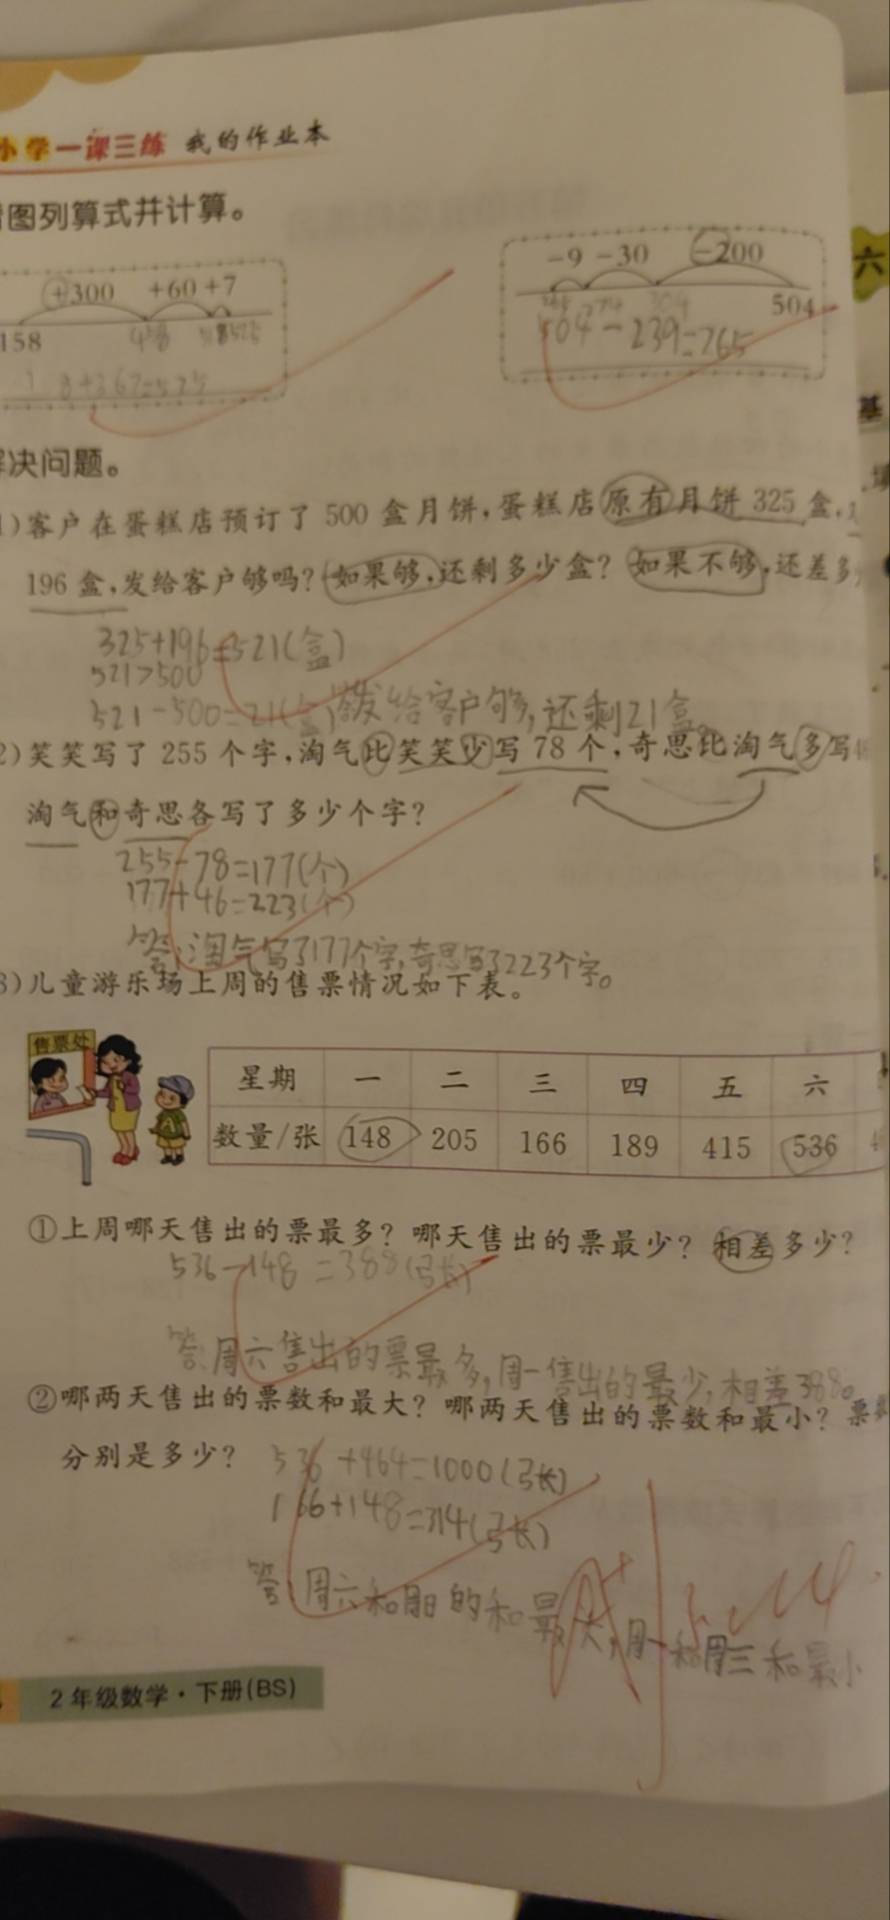 小学一课三练 我的作业本
图列算式并计算。
+300 +60 +7
158 458 525
8+367=525
-9 -30 -200
504
504-239=265
决问题。
1)客户在蛋糕店预订了500盒月饼,蛋糕店原有月饼325盒,
196盒,发给客户够吗?如果够,还剩多少盒?如果不够,还差多
325+196=521(盒)
521>500
521-500=21(盒)答发给客户够,还剩21盒。
2)笑笑写了255个字,淘气比笑笑少写78个,奇思比淘气多写
淘气和奇思各写了多少个字?
255-78=177(个)
177+46=223(个)
答:淘气写了177个字,奇思写了223个字。
3)儿童游乐场上周的售票情况如下表。
售票处
星期 一 二 三 四 五 六
数量/张 148 205 166 189 415 536
①上周哪天售出的票最多?哪天售出的票最少?相差多少?
536-148=388(张)
答:周六售出的票最多,周一售出的最少,相差388。
②哪两天售出的票数和最大?哪两天售出的票数和最小?票数
分别是多少?
536+464=1000(张)
166+148=314(张)
答:周六和周日的和最大,周一和周三和最小
2年级数学·下册(BS)
六
基